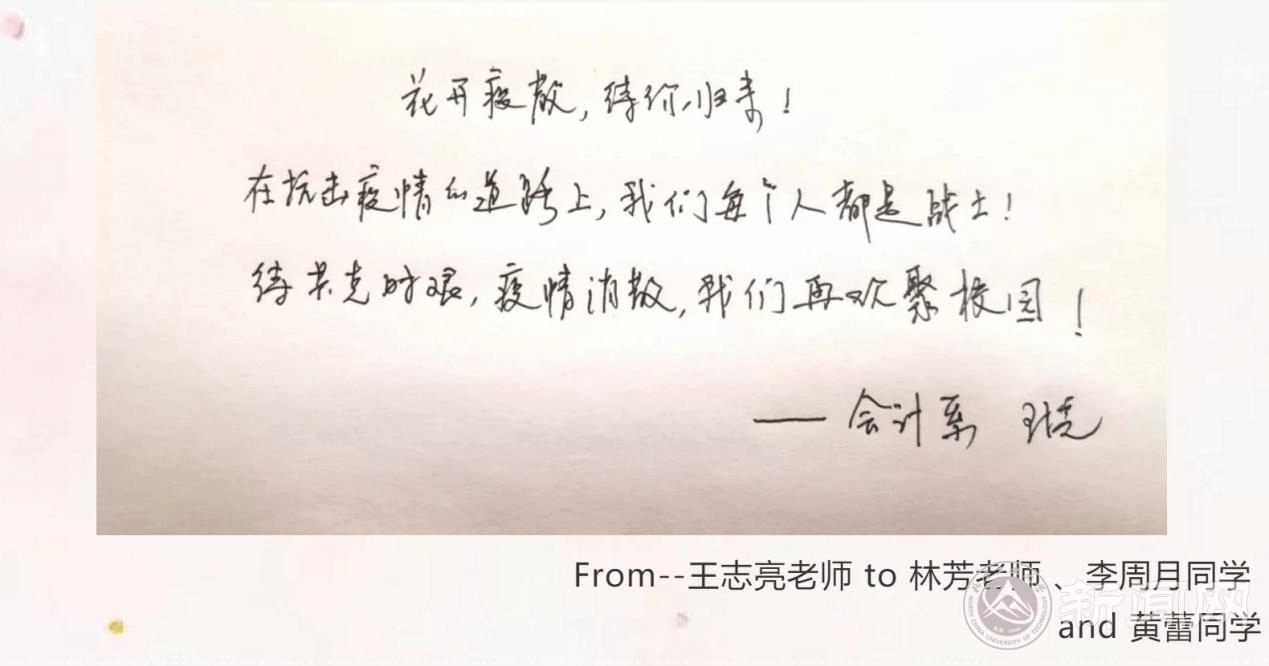 花开疫散，待你归来！
在抗击疫情的道路上，我们每个人都是战士！
待共克时艰，疫情消散，我们再欢聚校园！
——会计系
From--王志亮老师 to 林芳老师、李周月同学
and 黄蕾同学
新闻网
NORTH CHINA UNIVERSITY OF TECHNOLOGY